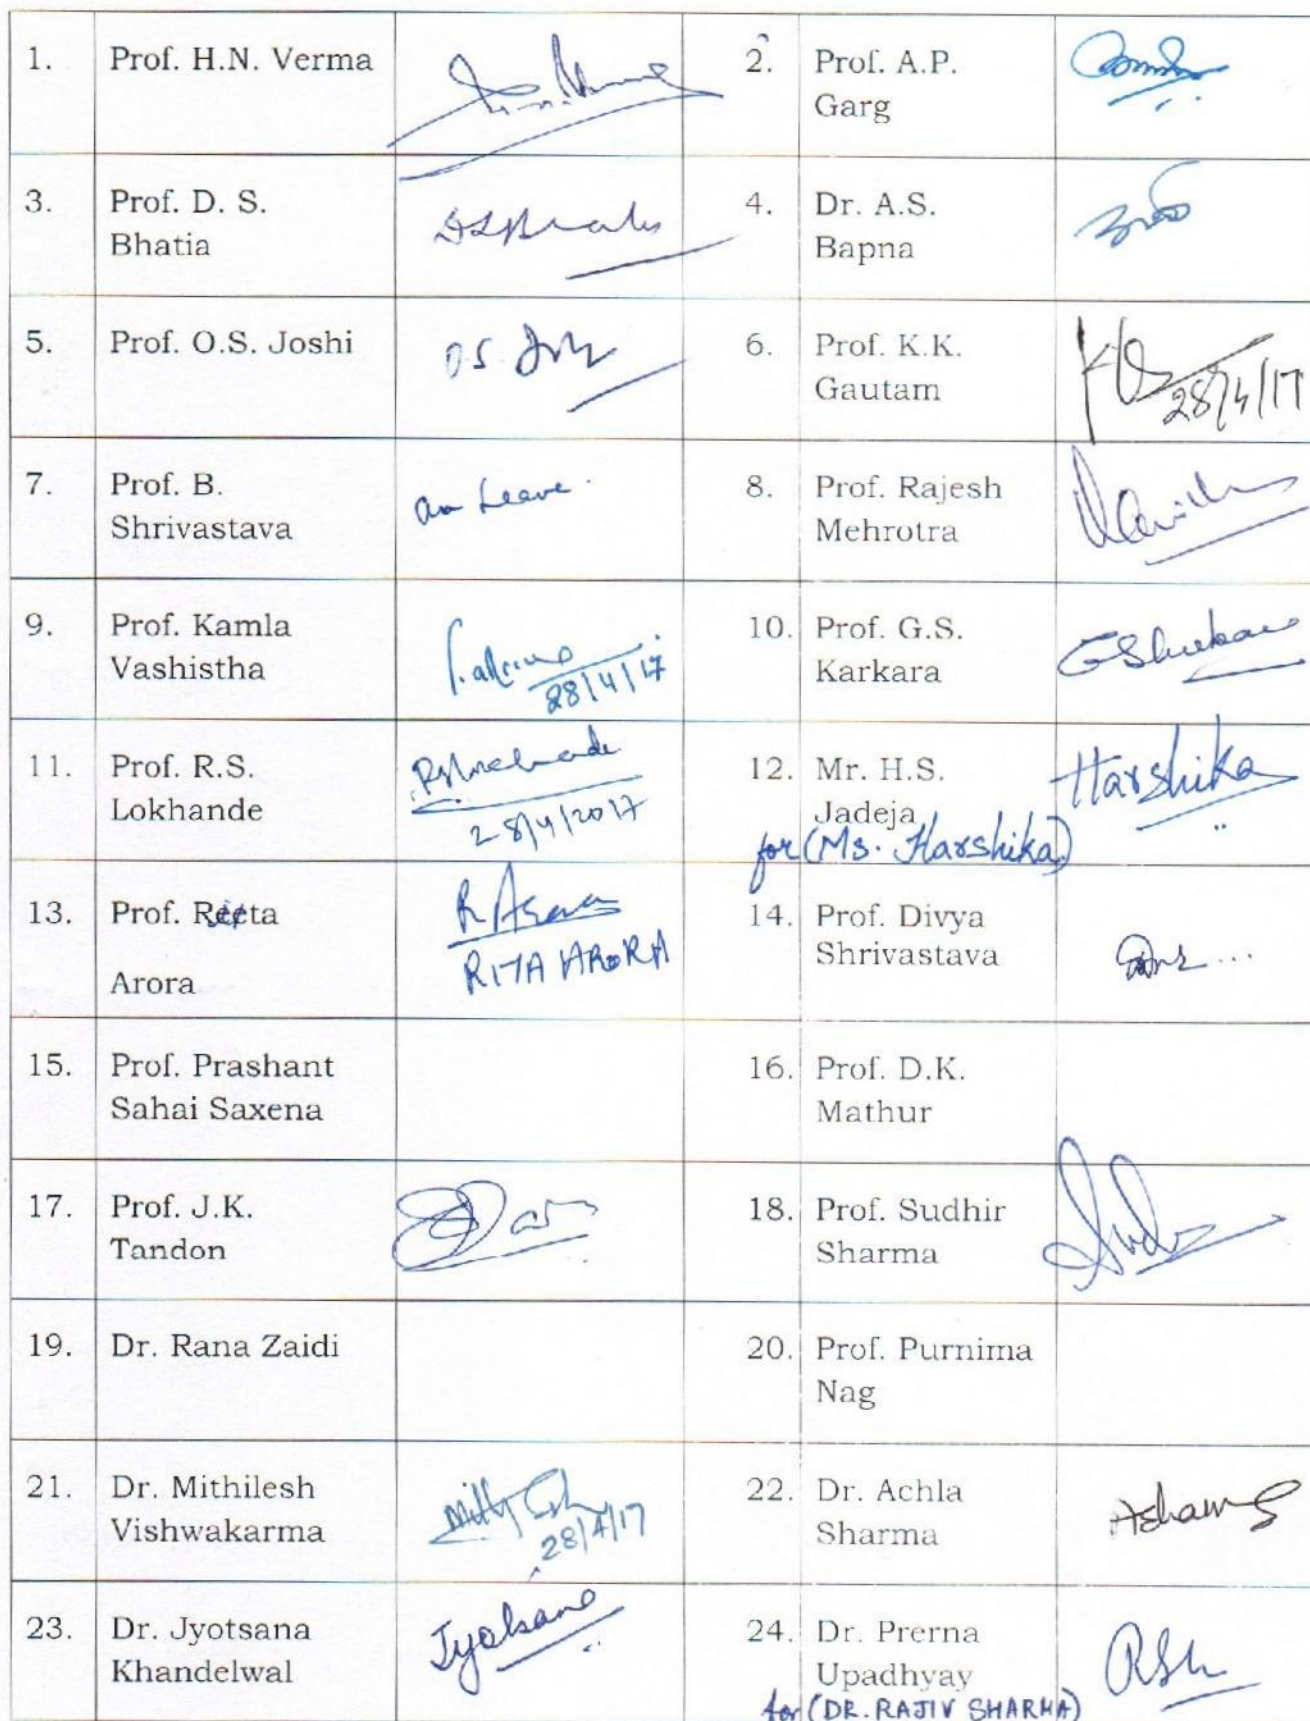 1. Prof. H.N. Verma
2. Prof. A.P.
Garg
3. Prof. D. S.
Bhatia
4. Dr. A.S.
Bapna
5. Prof. O.S. Joshi O.S. Joshi
6. Prof. K.K.
Gautam
28/4/17
7. Prof. B.
Shrivastava
on Leave.
8. Prof. Rajesh
Mehrotra
9. Prof. Kamla
Vashistha
28/4/17
10. Prof. G.S.
Karkara
11. Prof. R.S.
Lokhande
28/4/2017
12. Mr. H.S.
Jadeja
Harshika
for (Ms. Harshika)
13. Prof. Reeta
Arora
R Arora
RITA ARORA
14. Prof. Divya
Shrivastava
15. Prof. Prashant
Sahai Saxena
16. Prof. D.K.
Mathur
17. Prof. J.K.
Tandon
18. Prof. Sudhir
Sharma
19. Dr. Rana Zaidi
20. Prof. Purnima
Nag
21. Dr. Mithilesh
Vishwakarma
28/4/17
22. Dr. Achla
Sharma
23. Dr. Jyotsana
Khandelwal
Jyotsana
24. Dr. Prerna
Upadhyay
for (DR. RAJIV SHARMA)